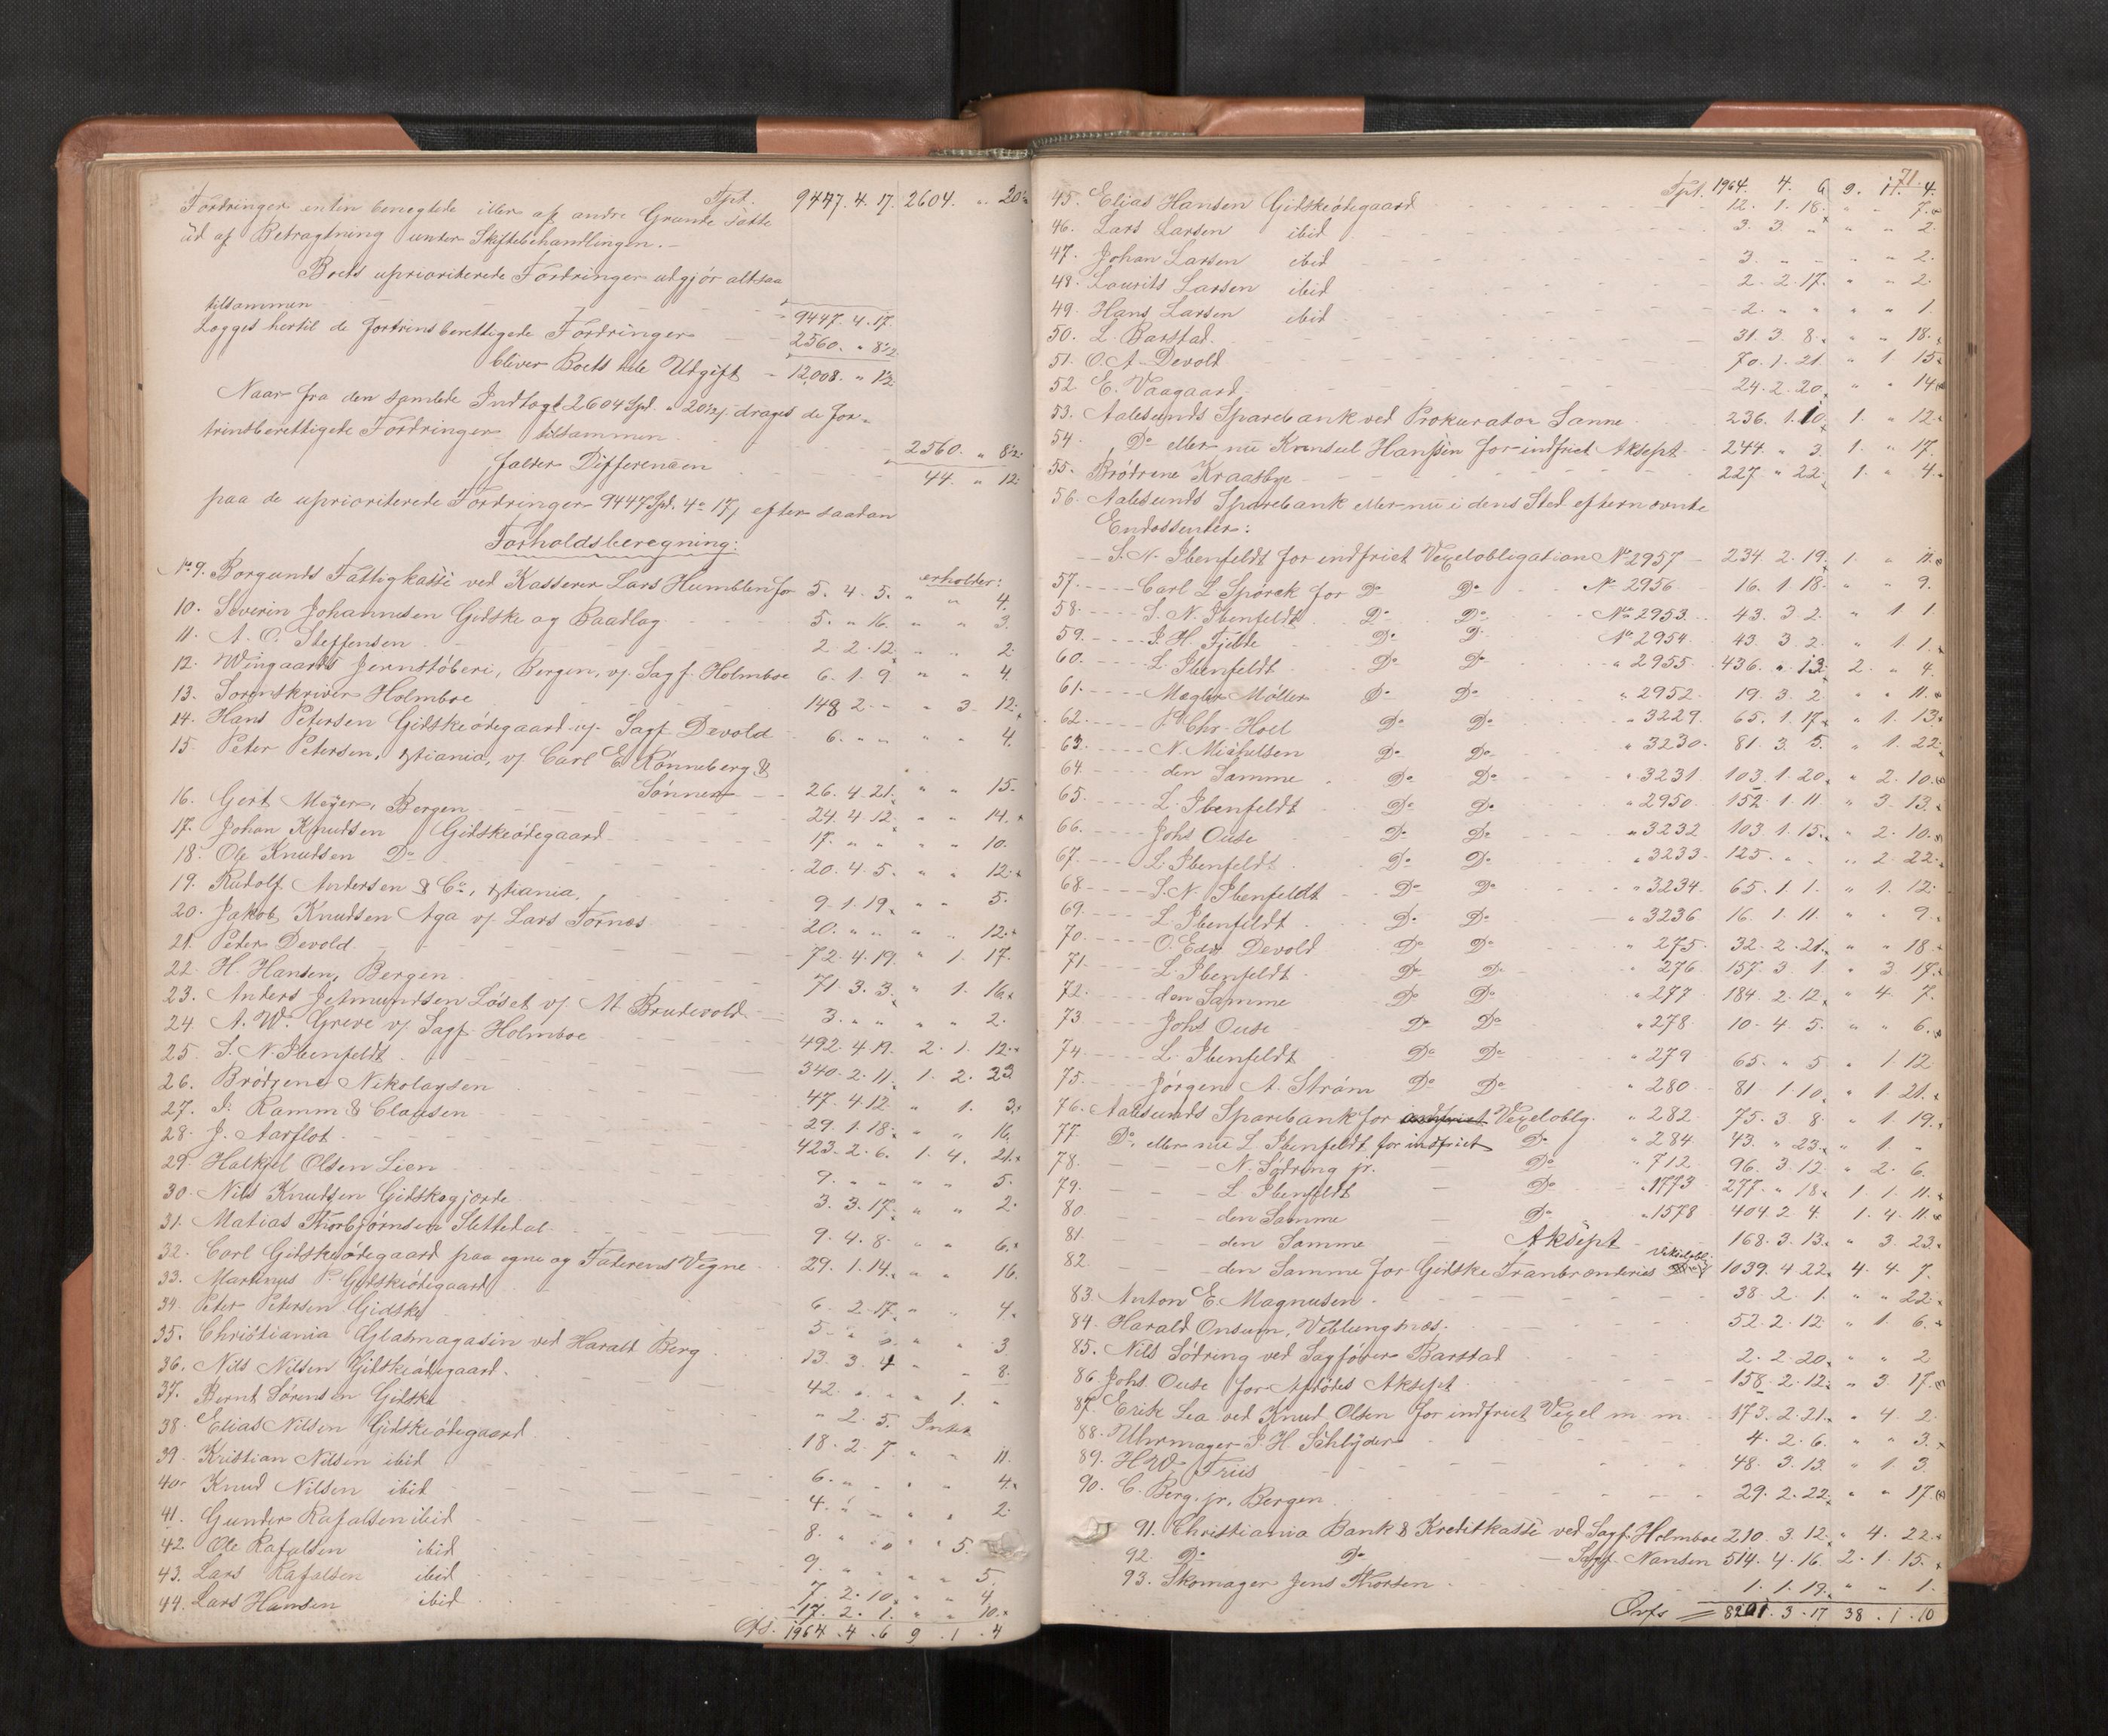 Tpt. 9447. 4. 17. 2604. " 20½
Fordringer enten benegtede eller af andre Grunde satte
ud af Betragtning under Skiftebehandlingen. —
Boets uprioriterede Fordringer udgjør altsaa
tilsammen 9447. 4. 17.
Lægges hertil de fortrinsberettigede Fordringer 2560. " 8½
bliver Boets hele Udgift — 12,008. " 1½
Naar fra den samlede Indtægt 2604 Spd. " 20½ drages de for-
trinsberettigede Fordringer tilsammen 2560. " 8½
falder Differencen 44. " 12.
paa de uprioriterede Fordringer 9447 Spd. 4 17 efter saadan
Forholdsberegning:
erholder:
No 9. Borgunds Fattigkasse ved Kasserer Lars Humblen for 5. 4. 5. " " 4.
10. Severin Johannesen Gidske og Baadlag 5. " 16. " " 3.
11. A. O. Steffensen 2 2. 12. " " 2.
12. Wingaards Jernstøberi, Bergen, v/ Sagf. Holmboe 6. 1. 9. " " 4.
13. Sorenskriver Holmboe 148 2 - " 3 12.
14. Hans Petersen Gidskeødegaard v/ Sagf. Devold 6. " " " " 4.
15. Peter Petersen, Xtiania, v/ Carl E Rønneberg &
Sønner 26. 4. 21. " " 15.
16. Gert Meyer, Bergen 24. 4 12. " " 14.
17. Johan Knudsen Gidskeødegaard 17. " " " " 10.
18. Ole Knudsen Do 20. 4. 5. " " 12.
19. Rudolf Andersen & Co, Xtiania, 9. 1. 19. " " 5.
20. Jakob Knudsen Aga v/ Lars Tornæs 20. " " " " 12.
21. Peter Devold 72. 4. 19. " 1. 17.
22. H. Hansen, Bergen 71. 3. 3. " 1. 16.
23. Anders Jetmundsen Løset v/ M. Brudevold 3. " " " " 2.
24. A. W. Greve v/ Sagf. Holmboe 492. 4. 19. 2. 1. 12.
25. S. N. Ibenfeldt 340. 2. 11. 1. 2. 23
26. Brødrene Nikolaysen 47. 4 12. " 1. 3.
27. Ramm & Clausen 29. 1. 18. " " 16.
28. J. Aarflot 423. 2. 6. 1. 4. 21.
29. Halkjel Olsen Lien 9. " " " " 5.
30. Nils Knudsen Gidskegjærde 3. 3. 17. " " 2.
31. Matias Thorbjørnsen Slettedal 9. 4. 8. " " 6.
32. Carl Gidskeødegaard paa egne og Faderens Vegne 29. 1. 14. " " 16.
33. Martinus P. Gidskeødegaard 6. 2. 17. " " 4.
34. Peter Petersen Gidske 5. " " " " 3
35. Christiania Glasmagasin ved Harald Berg 13. 3. 4 " " 8.
36. Nils Nilsen Gidskeødegaard. 42. " " " 1. "
37. Bernt Sørensen Gidske " 2. 5. Intet
38. Elias Nilsen Gidskeødegaard 18. 2. 7. " " 11.
39. Kristian Nilsen ibid 6. " " " " 4.
40. Knud Nilsen ibid 4. " " " " 2.
41. Gunder Rafalsen ibid 8. " " " " 5.
42. Ole Rafalsen ibid 9. " " " " 5.
43. Lars Rafalsen ibid 7. 2. 10. " " 4
44. Lars Hansen ibid 17. 2. 1. " " 10.
1964. 4. 6 9. 1. 4
71.
Tpt. 1964. 4. 6 9. 1. 4.
45. Elias Hansen Gidskeødegaard 12. 1. 18. " " 7.
46. Lars Larsen ibid 3. 3. " " " 2.
47. Johan Larsen ibid 3. " " " " 2.
48. Laurits Larsen ibid 2. 2. 17. " " 2.
49. Hans Larsen ibid 2. " " " " 1.
50. L. Barstad. 31. 3. 8. " " 18.
51. O. A. Devold 70. 1. 21. " 1 15.
52 E. Vaagaard 24. 2. 20. " " 14.
53. Aalesunds Sparebank ved Prokurator Sanne 236. 1. 10. 1. " 12.
54. Do eller nu Konsul Hanssen for indfriet Aksept 244. " 3. 1. " 17.
55. Brødrene Kraasbye 227. " 22. 1. " 4.
56. Aalesunds Sparebank eller nu i dens Sted efternævnte
Endossenter:
S. N. Ibenfeldt for indfriet Vexelobligation No 2957 234. 2. 19. 1. " 11.
57. Carl L Spørck for Do Do No 2956 16. 1 18. " " 9.
58. S. N. Ibenfeldt Do Do No 2953 43. 3 2. " 1 1.
59. J. H. Fjelde Do Do No 2954 43. 3 2. " 1 1.
60. L. Ibenfeldt Do Do " 2955 436. " 13. 2. " 4.
61. Mægler Møller Do Do " 2952 19. 3 2. " " 11.
62. P. Chr. Hoel Do Do " 3229. 65. 1. 17. " 1. 13.
63. N. Mickelsen Do Do " 3230. 81. 3. 5. " 1. 22.
64. den Samme Do Do " 3231 103. 1. 20. " 2. 10.
65. L. Ibenfeldt Do Do " 2950 152. 1. 11. " 3. 13.
66. Johs Ouse Do Do " 3232 103. 1. 15. " 2. 10.
67. L. Ibenfeldt Do Do " 3233 125. " " " 2. 22.
68 S. N. Ibenfeldt Do Do " 3234 65. 1. 1. " 1. 12.
69. L. Ibenfeldt Do Do " 3236 16. 1. 11. " " 9.
70. O. Edv. Devold Do Do " 275 32. 2. 21. " " 18.
71. L. Ibenfeldt Do Do " 276 157. 3. 1. " 3 17.
72. den Samme Do Do " 277 184. 2. 12. " 4. 7.
73 Johs Ouse Do Do " 278 10. 4 5. " " 6.
74. L. Ibenfeldt Do Do " 279 65. " 5 " 1. 12
75. Jørgen A. Strøm Do Do " 280 81. 1. 10. " 1. 21.
76. Aalesunds Sparebank for indfriet Vexeloblg. " 282 75. 3. 8. " 1. 19.
77. Do, eller nu L. Ibenfeldt for indfriet Do " 284 43. " 23. " 1. "
78. N. Sødring jr. Do " 712 96. 3. 12. " 2. 6.
79. L Ibenfeldt Do " 1773 277. " 18. 1. 1. 11.
80. den Samme Do " 1578 404. 2. 4. 1. 4. 11.
81. den Samme Aksept 168. 3. 13. " 3. 23.
82. den Samme for Gidske Tranbrænderies 1039. 4 22. 4. 4. 7.
83. Anton E. Magnusen 38. 2. 1. " " 22.
84. Harald Onsum, Veblungnæs. 52. 2. 12. " 1. 6.
85. Nils Sødring ved Sagfører Barstad 2. 2. 20. " " 2
86. Johs. Ouse for Afdødes Aksept 158. 2. 12. " 3. 17.
87. Erik Lea ved Knud Olsen for indfriet Vexel m. m. 173. 2. 21. " 4. 2.
88. Uhrmager P. H. Schlyder 4. 2. 6. " " 3.
89. H. W. Friis 48. 3. 13. " 1. 3.
90. C. Berg. jr, Bergen 29. 2. 22. " " 17.
91. Christiania Bank & Kreditkasse ved Sagf. Holmboe 210. 3. 12. " 4. 22.
92. Do Do Sagf. Nansen 514. 4. 16. 2. 1. 15.
93. Skomager Jens Thorsen 1. 1. 19. " " 1.
8201. 3. 17 38. 1. 10